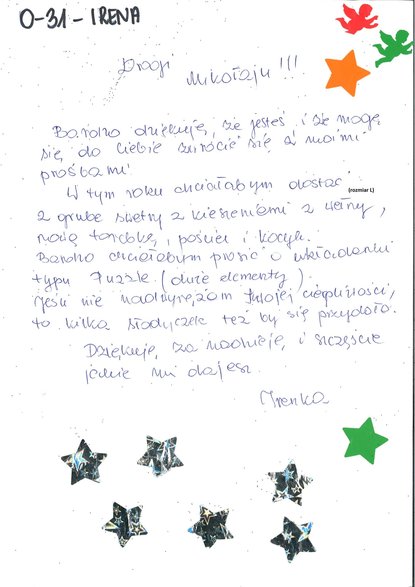 O-31-IRENA
Drogi
Mikołaju!!!
Bardzo dziękuję, że jesteś i że mogę
się do Ciebie zwrócić się z moimi
prośbami
W tym roku chciałabym dostać (rozmiar L)
2 grube swetry z kieszeniami z wełny,
nową torebkę, pościel i kocyk.
Bardzo chciałabym prosić o układanki
typu Puzzle. (duże elementy).
Jeśli nie nadużywam Twojej cierpliwości,
to kilka słodyczek też by się przydało.
Dziękuję za nadzieję, i szczęście
jakie mi dajesz
Irenka